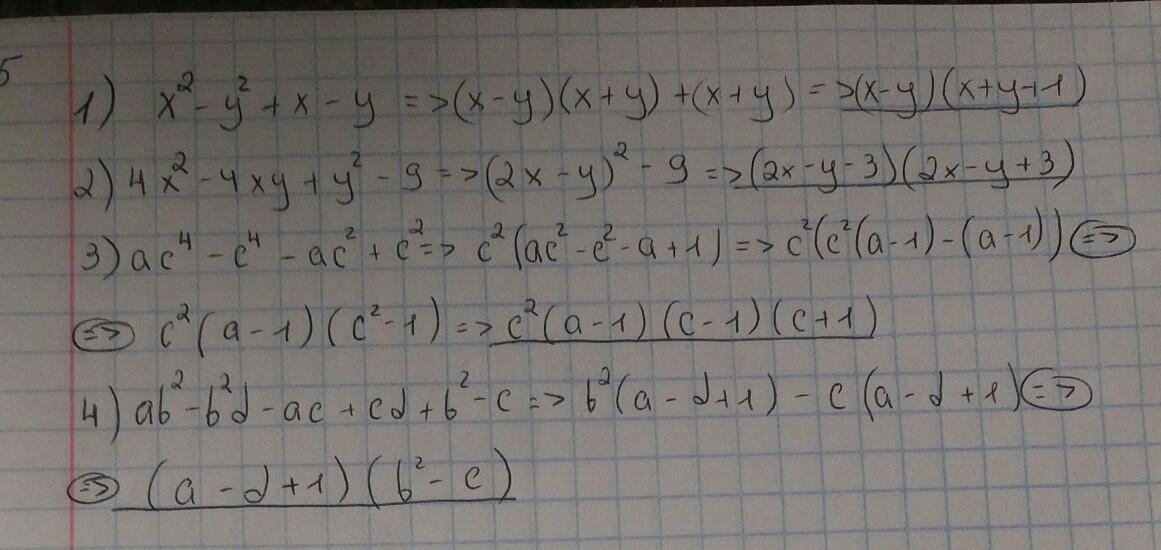 5
1) x² - y² + x - y => (x - y)(x + y) + (x + y) => (x - y)(x + y + 1)
2) 4x² - 4xy + y² - 9 => (2x - y)² - 9 => (2x - y - 3)(2x - y + 3)
3) ac⁴ - c⁴ - ac² + c² => c²(ac² - c² - a + 1) => c²(c²(a - 1) - (a - 1)) =>
=> c²(a - 1)(c² - 1) => c²(a - 1)(c - 1)(c + 1)
4) ab² - b²d - ac + cd + b² - c => b²(a - d + 1) - c(a - d + 1) =>
=> (a - d + 1)(b² - c)